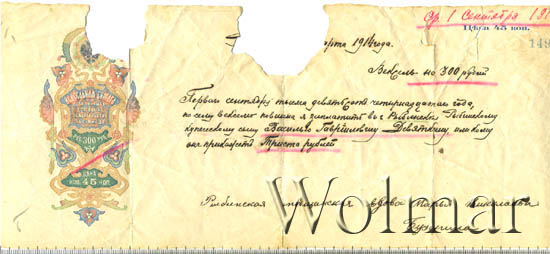 Ср. 1 Сентября 191
Цѣна 45 коп.
149
арта 1914 года.
Вексель на 300 рублей
Перваго сентября тысяча девятьсотъ четырнадцатаго года,
по сему векселю повинна я заплатить въ г. Рыбинскѣ Рыбинскому
купеческому сыну Василью Гавриловичу Девяткину или кому
онъ прикажетъ Триста рублей
Рыбинская мѣщанская вдова Марья Николаева
ВЕКСЕЛЬНАЯ БУМАГА
300 РУБ
ЦѢНА
45 КОП.
Wolmar